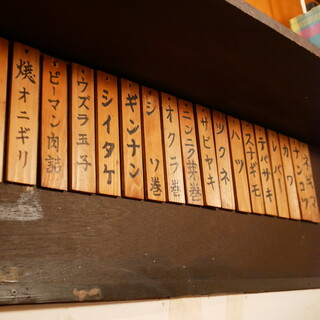 ネギマ
ナンコツ
カワ
レバー
テバサキ
スナギモ
ハツ
ツクネ
サビヤキ
ニンニク芽巻
オクラ巻
シソ巻
ギンナン
シイタケ
ウズラ玉子
ピーマン肉詰
焼オニギリ